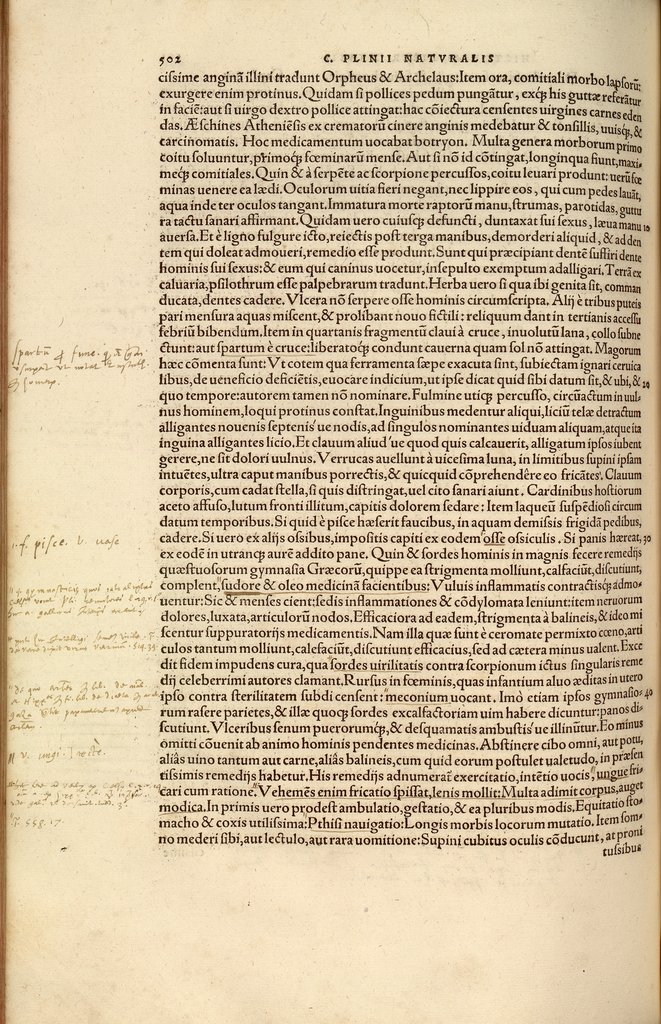 502
C. PLINII NATVRALIS
cissime anginā illini tradunt Orpheus & Archelaus: Item ora, comitiali morbo lapsorū:
exurgere enim protinus. Quidam si pollices pedum pungātur, exq̃ his guttæ referātur
in faciē: aut si uirgo dextro pollice attingat: hac cōiectura censentes uirgines carnes eden
das. Æschines Atheniēsis ex crematorū cinere anginis medebatur & tonsillis, uuisq̃, &
carcinomatis. Hoc medicamentum uocabat botryon. Multa genera morborum primo
coitu soluuntur, p̱rimoq̃ fœminarū mense. Aut si nō id cōtingat, longinqua fiunt, maxi⸗
meq̃ comitiales. Quin & à serpēte ac scorpione percussos, coitu leuari produnt: uerū fœ
minas uenere ea lædi. Oculorum uitia fieri negant, nec lippire eos, qui cum pedes lauāt,
aqua inde ter oculos tangant. Immatura morte raptorū manu, strumas, parotidas, guttu
ra tactu sanari affirmant. Quidam uero cuiusq̃ defuncti, duntaxat sui sexus, læua manu 10
auersa. Et è ligno fulgure icto, reiectis post terga manibus, demorderi aliquid, & ad den
tem qui doleat admoueri, remedio esse produnt. Sunt qui præcipiant dentē suffiri dente
hominis sui sexus: & eum qui caninus uocetur, insepulto exemptum adalligari. Terrā ex
caluaria, psilothrum esse palpebrarum tradunt. Herba uero si qua ibi genita sit, comman
ducata, dentes cadere. Vlcera nō serpere osse hominis circumscripta. Alij è tribus puteis
pari mensura aquas miscent, & prolibant nouo fictili: reliquum dant in tertianis accessu
febriū bibendum. Item in quartanis fragmentū claui à cruce, inuolutū lana, collo subne
ctunt: aut spartum è cruce: liberatoq̃ condunt cauerna quam sol nō attingat. Magorum
hæc cōmenta sunt: Vt cotem qua ferramenta sæpe exacuta sint, subiectam ignari ceruica
libus, de ueneficio deficiētis, euocare indicium, ut ipse dicat quid sibi datum sit, & ubi, & 20
quo tempore: autorem tamen nō nominare. Fulmine utiq̃ percusso, circūactum in uul⸗
nus hominem, loqui protinus constat. Inguinibus medentur aliqui, liciū telæ detractum
alligantes nouenis septenis'ue nodis, ad singulos nominantes uiduam aliquam, atque ita
inguina alligantes licio. Et clauum aliud'ue quod quis calcauerit, alligatum ipsos iubent
gerere, ne sit dolori uulnus. Verrucas auellunt à uicesima luna, in limitibus supini ipsam
intuētes, ultra caput manibus porrectis, & quicquid cōprehendêre eo fricātes. Clauum
corporis, cum cadat stella, si quis distringat, uel cito sanari aiunt. Cardinibus hostiorum
aceto affuso, lutum fronti illitum, capitis dolorem sedare: Item laqueū suspēdiosi circum
datum temporibus. Si quid è pisce hæserit faucibus, in aquam demissis frigidā pedibus,
cadere. Si uero ex alijs ossibus, impositis capiti ex eodem osse ossiculis. Si panis hæreat, 30
ex eodē in utranq̃ aurē addito pane. Quin & sordes hominis in magnis fecere remedijs
quæstuosorum gymnasia Græcorū, quippe ea strigmenta molliunt, calfaciūt, discutiunt,
complent, sudore & oleo medicinā facientibus: Vuluis inflammatis contractisq̃ admo⸗
uentur: Sic & menses cient: sedis inflammationes & cōdylomata leniunt: item neruorum
dolores, luxata, articulorū nodos. Efficaciora ad eadem, strigmenta à balineis, & ideo mi
scentur suppuratorijs medicamentis. Nam illa quæ sunt è ceromate permixto cœno, arti
culos tantum molliunt, calefaciūt, discutiunt efficacius, sed ad cætera minus ualent. Exce
dit fidem impudens cura, qua sordes uirilitatis contra scorpionum ictus singularis reme
dij celeberrimi autores clamant. Rursus in fœminis, quas infantium aluo æditas in utero
ipso contra sterilitatem subdi censent: meconium uocant. Imò etiam ipsos gymnasio⸗ 40
rum rasere parietes, & illæ quoq̃ sordes excalfactoriam uim habere dicuntur: panos di⸗
scutiunt. Vlceribus senum puerorumq̃, & desquamatis ambustis'ue illinūtur. Eo minus
omitti cōuenit ab animo hominis pendentes medicinas. Abstinere cibo omni, aut potu,
aliâs uino tantum aut carne, aliâs balineis, cum quid eorum postulet ualetudo, in præsen
tissimis remedijs habetur. His remedijs adnumerāt exercitatio, intētio uocis, ungue fri⸗
cari cum ratione. Vehemēs enim fricatio spissat, lenis mollit: Multa adimit corpus, auget
modica. In primis uero prodest ambulatio, gestatio, & ea pluribus modis. Equitatio sto⸗
macho & coxis utilissima: Pthisi nauigatio: Longis morbis locorum mutatio. Item som⸗
no mederi sibi, aut lectulo, aut rara uomitione: Supini cubitus oculis cōducunt, at proni
tussibus